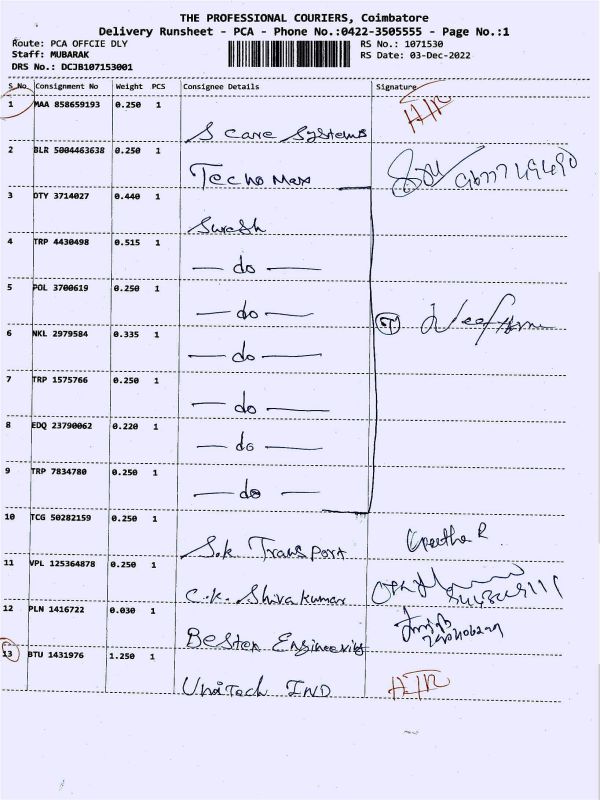 THE PROFESSIONAL COURIERS, Coimbatore
Delivery Runsheet - PCA - Phone No.:0422-3505555 - Page No.:1
Route: PCA OFFCIE DLY
RS No.: 1071530
Staff: MUBARAK
RS Date: 03-Dec-2022
DRS No.: DCJB107153001
S_No. Consignment No Weight PCS Consignee Details Signature
1 MAA 858659193 0.250 1 S Care Systems HTR
2 BLR 5004463638 0.250 1 Techo Max
3 DTY 3714027 0.440 1 Suresh
4 TRP 4430498 0.515 1 — do —
5 POL 3700619 0.250 1 — do —
6 NKL 2979584 0.335 1 — do —
7 TRP 1575766 0.250 1 — do —
8 EDQ 23790062 0.220 1 — do —
9 TRP 7834780 0.250 1 — do —
10 TCG 50282159 0.250 1 S.K Transport Geetha R
11 VPL 125364878 0.250 1 C.K. Shiva kumar
12 PLN 1416722 0.030 1 Besten Engineering
13 BTU 1431976 1.250 1 Unitech IND HTR